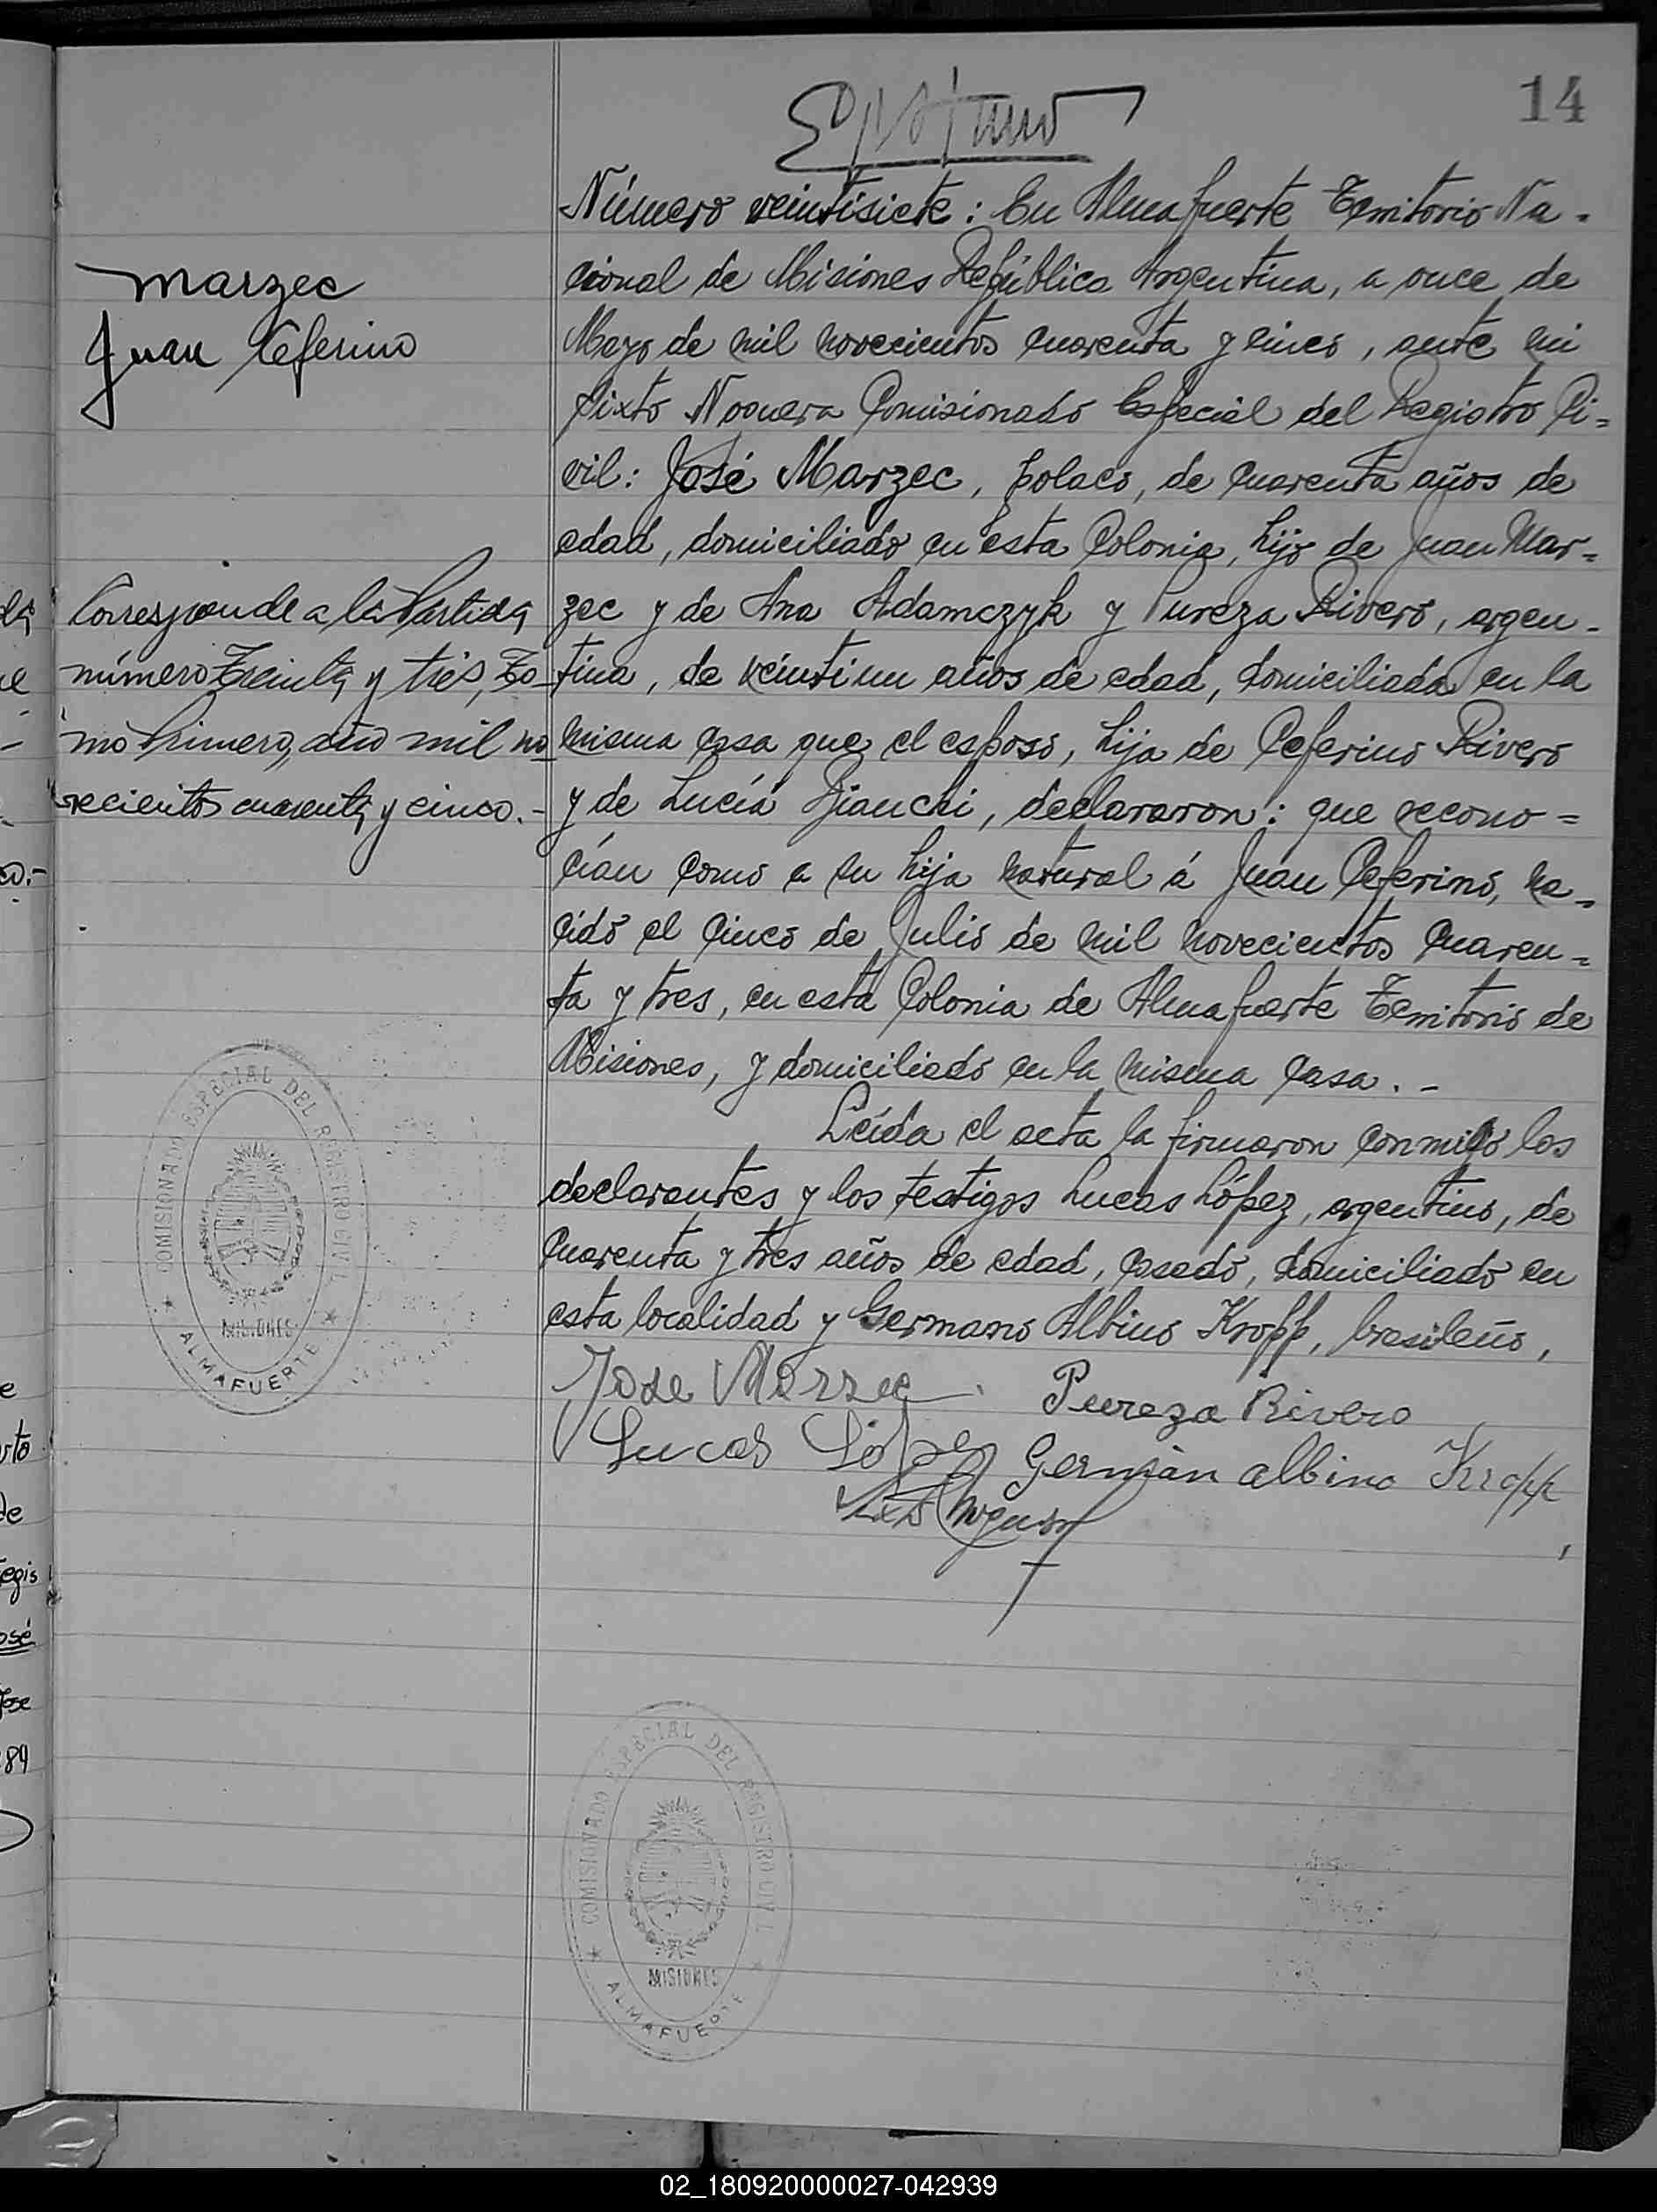 14
Número veintisiete: En Almafuerte Territorio Na-
cional de Misiones República Argentina, a once de
Mayo de mil novecientos cuarenta y cinco, ante mi
Sixto Noguera Comisionado Especial del Registro Ci=
vil: José Marzec, polaco, de cuarenta años de
edad, domiciliado en esta Colonia, hijo de Juan Mar=
zec y de Ana Adamczyk y Pureza Rivero, argen-
tina, de veintiun años de edad, domiciliada en la
misma casa que el esposo, hija de Ceferino Rivero
y de Lucía Bianchi, declararon: que recono=
cían como a su hija natural á Juan Ceferino, na-
cido el cinco de Julio de mil novecientos cuaren=
ta y tres, en esta Colonia de Almafuerte Territorio de
Misiones, y domiciliado en la misma casa.-
Leída el acta la firmaron conmigo los
declarantes y los testigos Lucas López, argentino, de
cuarenta y tres años de edad, casado, domiciliado en
esta localidad y Germano Albino Kropp, brasileño,
Jose Marzec Pureza Rivero
Lucas López Germán albino Kropp
Marzec
Juan Ceferino
Corresponde a la Partida
número Treinta y trés, To-
mo Primero, año mil no
vecientos cuarenta y cinco.-
COMISIONADO ESPECIAL DEL REGISTRO CIVIL
MISIONES
ALMAFUERTE
COMISIONADO ESPECIAL DEL REGISTRO CIVIL
MISIONES
ALMAFUERTE
de
egis
osé
Jose
89
02_180920000027-042939